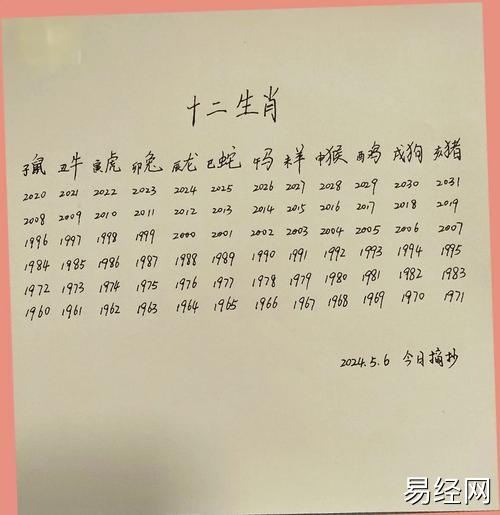 十二生肖
子鼠 丑牛 寅虎 卯兔 辰龙 巳蛇 午马 未羊 申猴 酉鸡 戌狗 亥猪
2020 2021 2022 2023 2024 2025 2026 2027 2028 2029 2030 2031
2008 2009 2010 2011 2012 2013 2014 2015 2016 2017 2018 2019
1996 1997 1998 1999 2000 2001 2002 2003 2004 2005 2006 2007
1984 1985 1986 1987 1988 1989 1990 1991 1992 1993 1994 1995
1972 1973 1974 1975 1976 1977 1978 1979 1980 1981 1982 1983
1960 1961 1962 1963 1964 1965 1966 1967 1968 1969 1970 1971
2024.5.6 今日摘抄
易经网